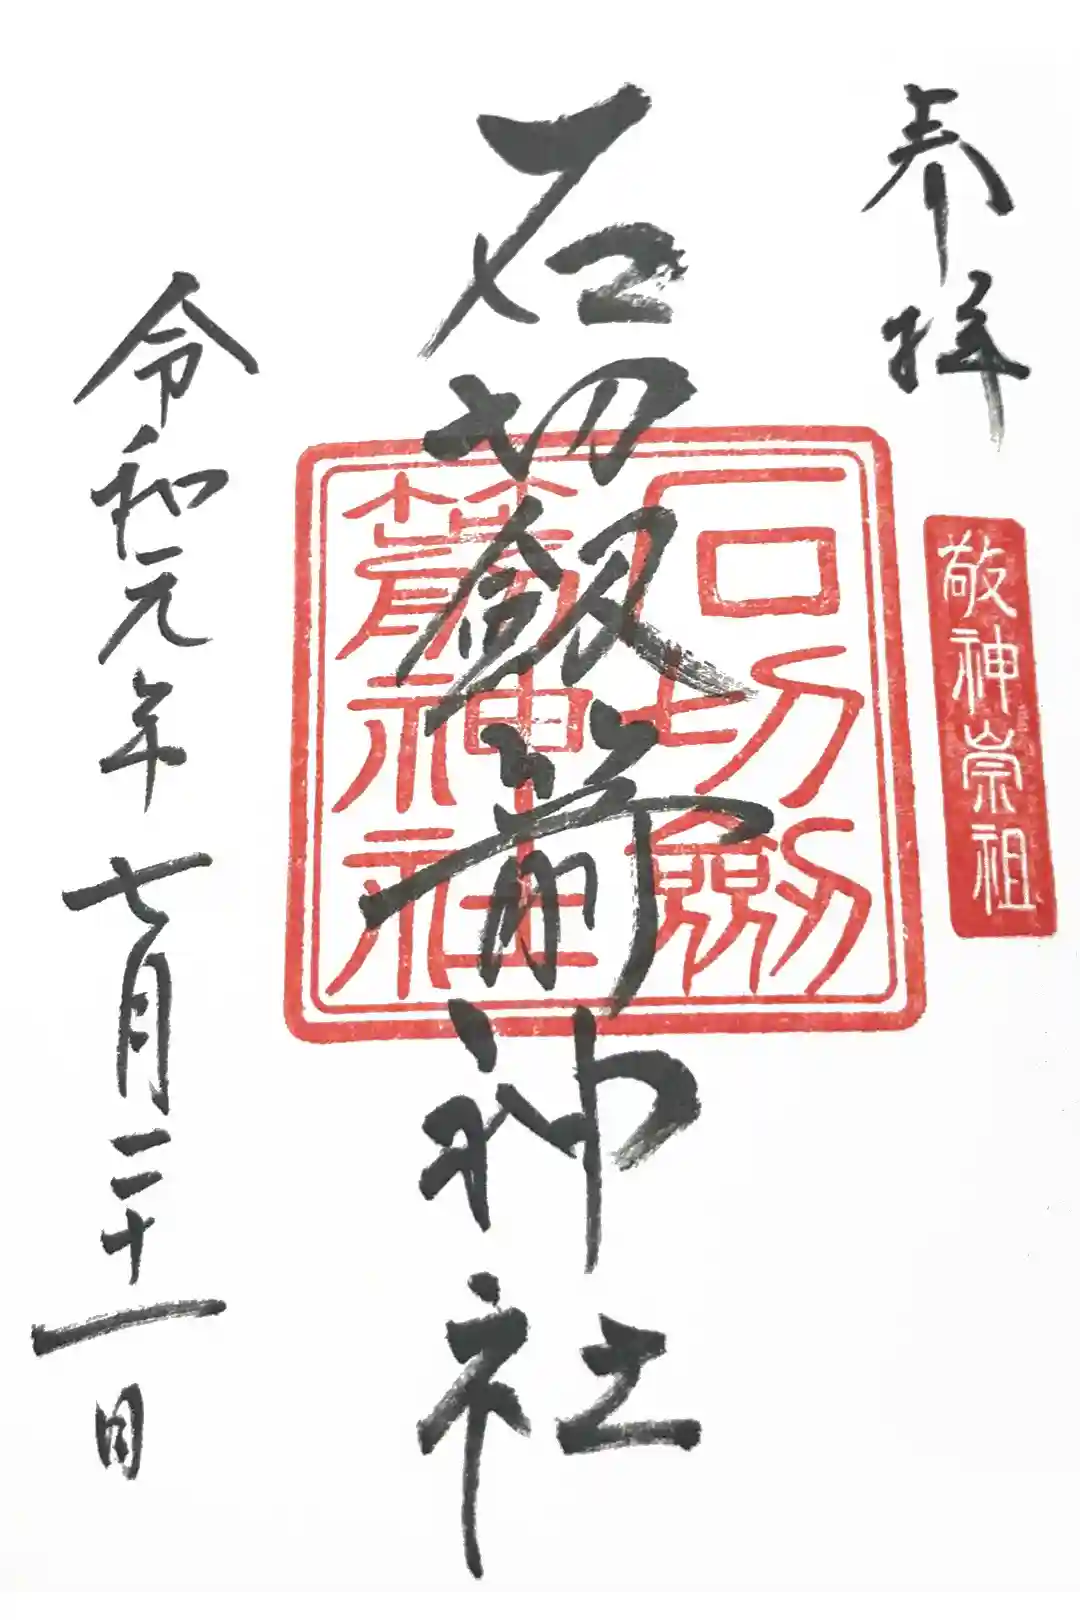 奉拝
敬神崇祖
石切剱箭神社
石切劔
箭神社
令和元年七月二十一日